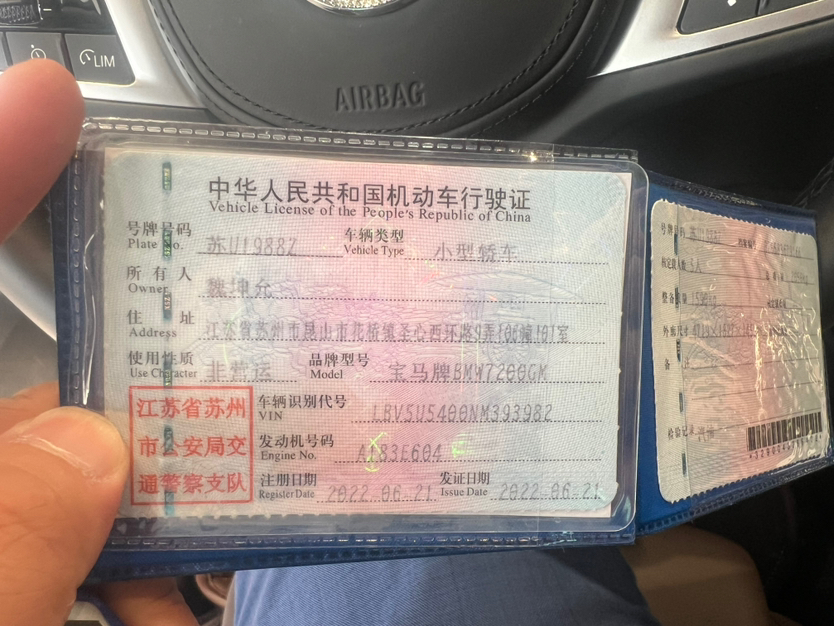 LIM
AIRBAG
中华人民共和国机动车行驶证
Vehicle License of the People's Republic of China
号牌号码 苏U1988Z 车辆类型 小型轿车
Plate No. Vehicle Type
所有人 魏坤允
Owner
住址 江苏省苏州市昆山市花桥镇圣心西环路9弄106幢101室
Address
使用性质 非营运 品牌型号 宝马牌BMW7200GK
Use Character Model
江苏省苏州
市公安局交
通警察支队
车辆识别代号 LBV5U5400NM393982
VIN
发动机号码 A183E604
Engine No.
注册日期 2022.06.21 发证日期 2022.06.21
Register Date Issue Date
号牌号码
整备质量
外廓尺寸
备注
检验记录